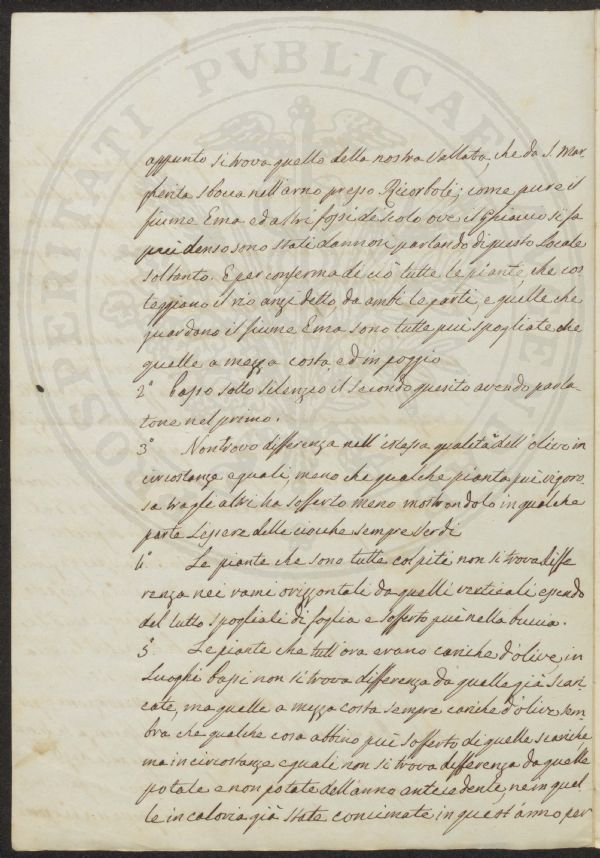 PROSPERITATI PVBLICAE
appunto si trova quello della nostra Vallata, che da S. Mar-
gherita sbocca nell'arno presso Ricorboli; come pure il
fiume Ema ed altri fossi di scolo ove il Ghiaccio si fa
più denso sono state dannosi parlando di questo Locale
soltanto. E per conferma di ciò tutte le piante, che cos
teggiano il rio anzi detto, da ambi le parti, e quelle che
guardano il fiume Ema sono tutte più spogliate che
quelle a mezza costa, ed in poggio
2° Passo sotto silenzio il secondo quesito avendo parla-
tone nel primo.
3° Non trovo differenza nell'istessa qualità dell'olivo in
circostanze eguali, meno che qualche pianta più vigoro
sa tragli altri ha sofferto meno mostrandolo in qualche
parte l'essere delle ciocche sempre Verdi
4° Le piante che sono tutte colpite non si trova diffe
renza nei rami orizzontali da quelli verticali essendo
del tutto spogliati di foglia e sofferto più nella buccia.
5° Le piante che tutt'ora erano cariche d'olive, in
Luoghi bassi non si trova differenza da quelle già scari-
cate, ma quelle a mezza costa sempre cariche d'olive sem-
bra che qualche cosa abbino più sofferto di quelle scariche
ma in circostanze eguali non si trova differenza da quelle
potate e non potate dell'anno antecedente, ne in quel
le in caloria già state concimate in quest'anno per